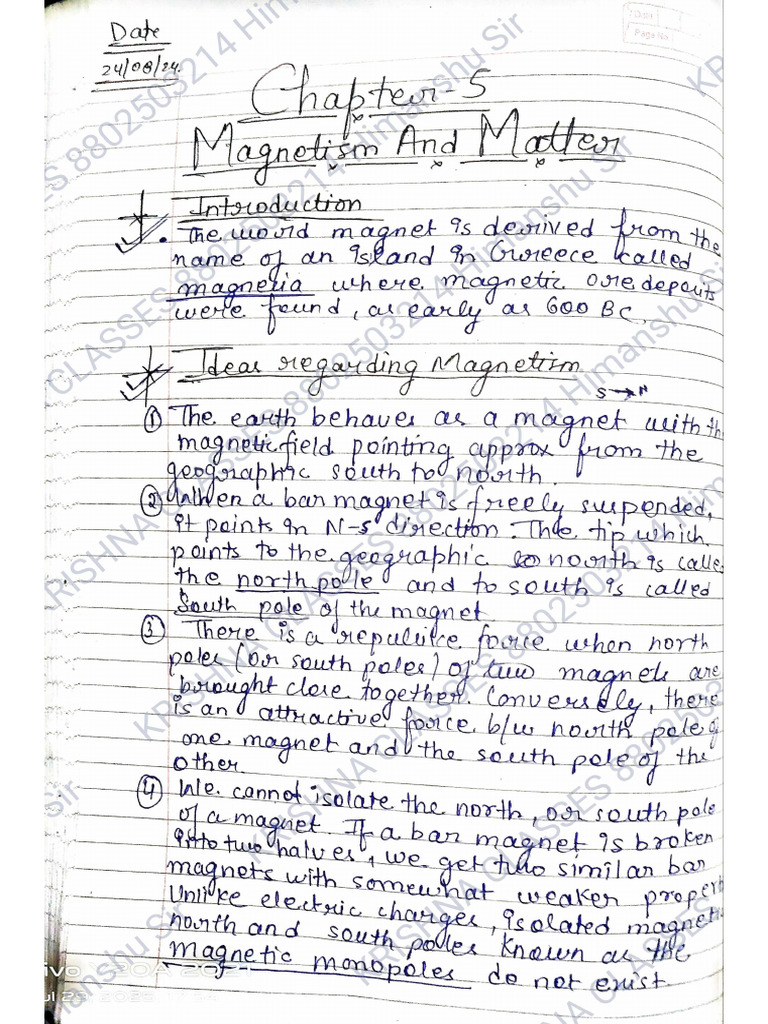 Date
24/08/24.
Date
Page No
Chapter-5
Magnetism And Matter
Introduction
. The word magnet is derived from the
name of an island in Greece called
magnesia where magnetic ore deposits
were found, as early as 600 BC.
Ideas regarding Magnetism
S → N
① The earth behaves as a magnet with the
magnetic field pointing approx from the
geographic south to north.
② When a bar magnet is freely suspended,
it points in N-S direction. The tip which
points to the geographic north is called
the north pole and to south is called
South pole of the magnet.
③ There is a repulsive force when north
poles (or south poles) of two magnets are
brought close together. Conversely, there
is an attractive force b/w north pole of
one magnet and the south pole of the
other.
④ We cannot isolate the north, or south pole
of a magnet. If a bar magnet is broken
into two halves, we get two similar bar
magnets with somewhat weaker propert
Unlike electric charges, isolated magnetic
north and south poles known as the
magnetic monopoles do not exist.
KRISHNA CLASSES 8802503214 Himanshu Sir